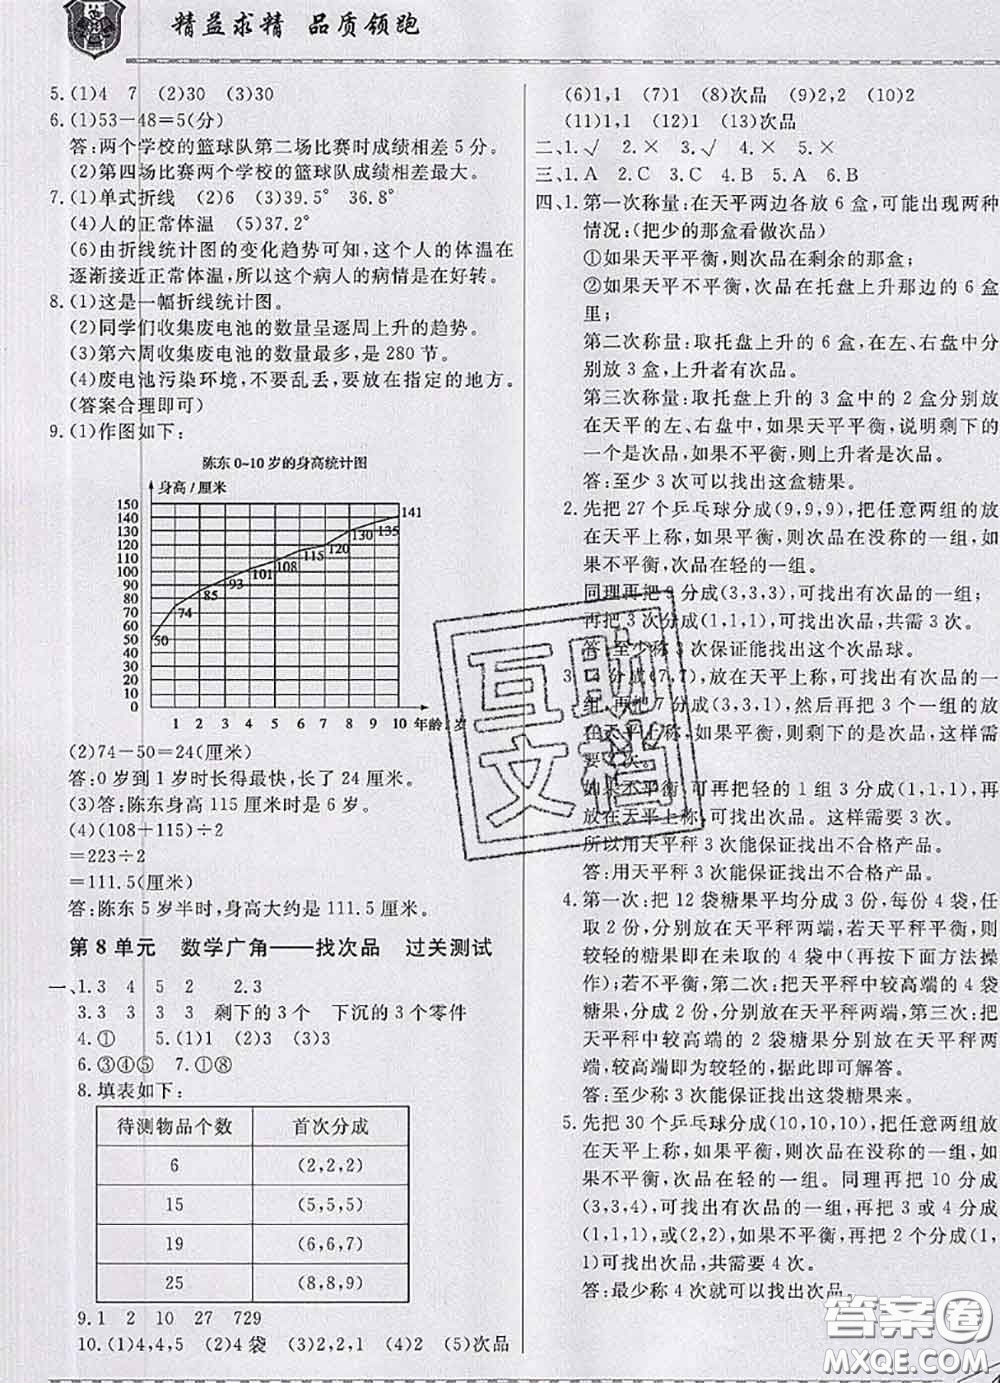 精益求精 品质领跑
5.(1)4 7 (2)30 (3)30
6.(1)53-48=5(分)
答:两个学校的篮球队第二场比赛时成绩相差5分。
(2)第四场比赛两个学校的篮球队成绩相差最大。
7.(1)单式折线 (2)6 (3)39.5° 36.8°
(4)人的正常体温 (5)37.2°
(6)由折线统计图的变化趋势可知,这个人的体温在
逐渐接近正常体温,所以这个病人的病情是在好转。
8.(1)这是一幅折线统计图。
(2)同学们收集废电池的数量呈逐周上升的趋势。
(3)第六周收集废电池的数量最多,是280节。
(4)废电池污染环境,不要乱丢,要放在指定的地方。
(答案合理即可)
9.(1)作图如下:
陈东0~10岁的身高统计图
身高/厘米
150
140
130
120
110
100
90
80
70
60
50
40
30
20
10
0
50 74 85 93 101 108 115 120 130 135 141
1 2 3 4 5 6 7 8 9 10 年龄/岁
(2)74-50=24(厘米)
答:0岁到1岁时长得最快,长了24厘米。
(3)答:陈东身高115厘米时是6岁。
(4)(108+115)÷2
=223÷2
=111.5(厘米)
答:陈东5岁半时,身高大约是111.5厘米。
第8单元 数学广角——找次品 过关测试
一、1.3 4 5 2 2.3
3.3 3 3 3 剩下的3个 下沉的3个零件
4.① 5.(1)3 (2)3 (3)3
6.③④⑤ 7.①⑧
8.填表如下:
待测物品个数 首次分成
6 (2,2,2)
15 (5,5,5)
19 (6,6,7)
25 (8,8,9)
9.1 2 10 27 729
10.(1)4,4,5 (2)4袋 (3)2,2,1 (4)2 (5)次品
(6)1,1 (7)1 (8)次品 (9)2,2 (10)2
(11)1,1 (12)1 (13)次品
二、1.√ 2.× 3.√ 4.× 5.×
三、1.A 2.C 3.C 4.B 5.A 6.B
四、1.第一次称量:在天平两边各放6盒,可能出现两种
情况:(把少的那盒看做次品)
①如果天平平衡,则次品在剩余的那盒;
②如果天平不平衡,次品在托盘上升那边的6盒
里;
第二次称量:取托盘上升的6盒,在左、右盘中分
别放3盒,上升者有次品。
第三次称量:取托盘上升的3盒中的2盒分别放
在天平的左、右盘中,如果天平平衡,说明剩下的
一个是次品,如果不平衡,则上升者是次品。
答:至少3次可以找出这盒糖果。
2.先把27个乒乓球分成(9,9,9),把任意两组的放
在天平上称,如果平衡,则次品在没称的一组,如
果不平衡,次品在轻的一组。
同理再把9分成(3,3,3),可找出有次品的一组;
再把3次分成(1,1,1),可找出次品,共需3次。
答:至少称3次保证能找出这个次品球。
3.14分成(7,7),放在天平上称,可找出有次品的一
组,再把7分成(3,3,1),然后再把3个一组的放
在天平上称,如果平衡,则剩下的是次品,这样需要
2次。
如果不平衡,可再把轻的1组3分成(1,1,1),再
放在天平上称,可找出次品。这样需要3次。
所以用天平秤3次能保证找出不合格产品。
答:用天平秤3次能保证找出不合格产品。
4.第一次:把12袋糖果平均分成3份,每份4袋,任
取2份,分别放在天平秤两端,若天平秤平衡,则
较轻的即在未取的4袋中(再按下面方法操
作);若不平衡,第二次:把天平秤中较高端的4袋
糖果,分成2份,分别放在天平秤两端,第三次:把
天平秤中较高端的2袋糖果分别放在天平秤两
端,较高端即为较轻的,据此即可解答。
答:至少称3次能保证找出这袋糖果来。
5.先把30个乒乓球分成(10,10,10),把任意两组放
在天平上称,如果平衡,则次品在没称的一组,如
果不平衡,次品在轻的一组。同理再把10分成
(3,3,4),可找出有次品的一组,再把3或4分成
(1,1,1),或(2,2),如果不平衡,再把2个分成(1,
1)可找出次品,共需要4次。
答:最少称4次就可以找出次品。
互助
文档
答案圈
MXQE.COM